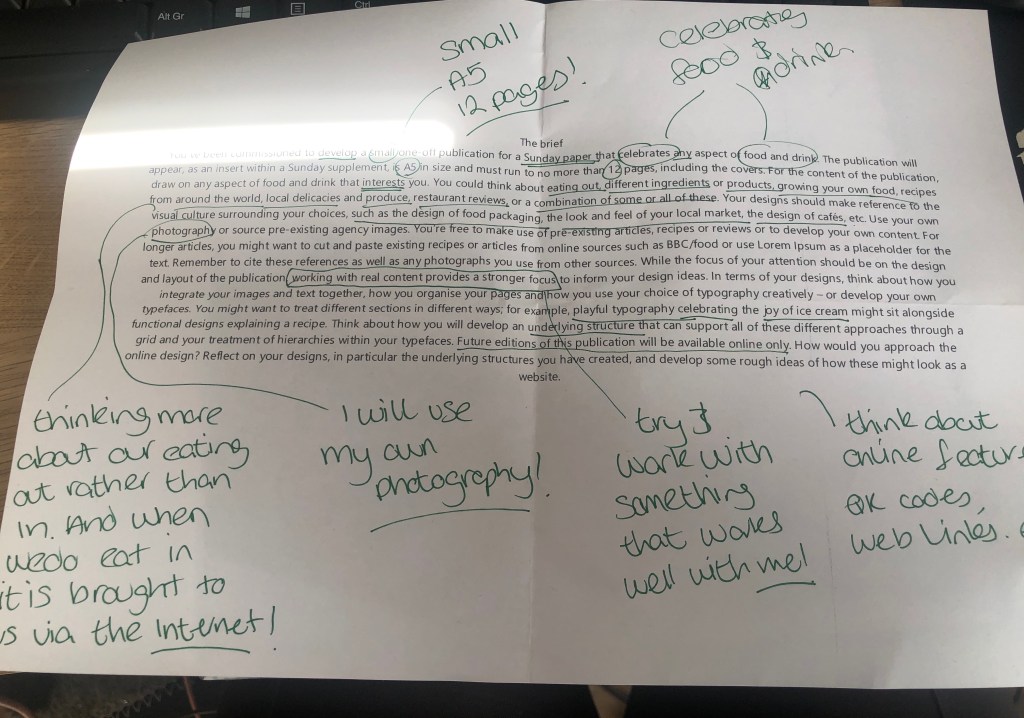 Alt Gr
Ctrl
small
A5
12 pages!
celebrates
food &
drink
The brief
You've been commissioned to develop a small one-off publication for a Sunday paper that celebrates any aspect of food and drink. The publication will
appear, as an insert within a Sunday supplement, is A5 in size and must run to no more than 12 pages, including the covers. For the content of the publication,
draw on any aspect of food and drink that interests you. You could think about eating out, different ingredients or products, growing your own food, recipes
from around the world, local delicacies and produce, restaurant reviews, or a combination of some or all of these. Your designs should make reference to the
visual culture surrounding your choices, such as the design of food packaging, the look and feel of your local market, the design of cafés, etc. Use your own
photography or source pre-existing agency images. You're free to make use of pre-existing articles, recipes or reviews or to develop your own content. For
longer articles, you might want to cut and paste existing recipes or articles from online sources such as BBC/food or use Lorem Ipsum as a placeholder for the
text. Remember to cite these references as well as any photographs you use from other sources. While the focus of your attention should be on the design
and layout of the publication, working with real content provides a stronger focus to inform your design ideas. In terms of your designs, think about how you
integrate your images and text together, how you organise your pages and how you use your choice of typography creatively – or develop your own
typefaces. You might want to treat different sections in different ways; for example, playful typography celebrating the joy of ice cream might sit alongside
functional designs explaining a recipe. Think about how you will develop an underlying structure that can support all of these different approaches through a
grid and your treatment of hierarchies within your typefaces. Future editions of this publication will be available online only. How would you approach the
online design? Reflect on your designs, in particular the underlying structures you have created, and develop some rough ideas of how these might look as a
website.
thinking more
about our eating
out rather than
in. And when
wedo eat in
it is brought to
us via the internet!
I will use
my own
photography!
try &
work with
something
that works
well with me!
think about
online featur
QR codes,
web links.